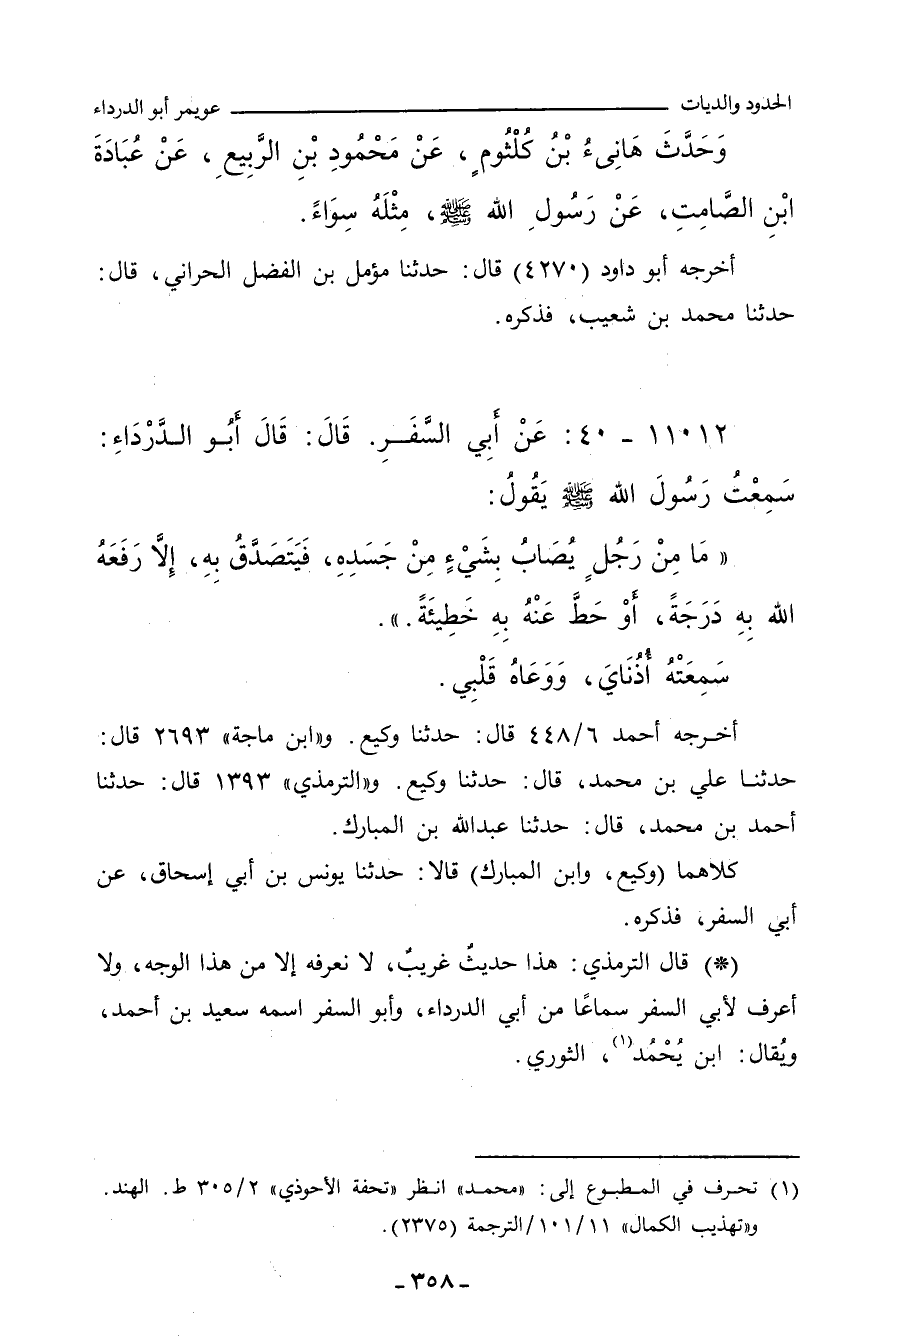 الحدود والديات ــــــــــــــــــــــــ عويمر أبو الدرداء
وَحَدَّثَ هَانِىءُ بْنُ كُلْثُومٍ، عَنْ مَحْمُودِ بْنِ الرَّبِيعِ، عَنْ عُبَادَةَ
ابْنِ الصَّامِتِ، عَنْ رَسُولِ الله ﷺ، مِثْلَهُ سِوَاءً.
أخرجه أبو داود (٤٢٧٠) قال: حدثنا مؤمل بن الفضل الحراني، قال:
حدثنا محمد بن شعيب، فذكره.
١١٠١٢ - ٤٠: عَنْ أَبِي السَّفَرِ. قَالَ: قَالَ أَبُو الدَّرْدَاءِ:
سَمِعْتُ رَسُولَ الله ﷺ يَقُولُ:
« مَا مِنْ رَجُلٍ يُصَابُ بِشَيْءٍ مِنْ جَسَدِهِ، فَيَتَصَدَّقُ بِهِ، إِلَّا رَفَعَهُ
الله بِهِ دَرَجَةً، أَوْ حَطَّ عَنْهُ بِهِ خَطِيئَةً.».
سَمِعَتْهُ أُذُنَايَ، وَوَعَاهُ قَلْبِي.
أخرجه أحمد ٤٤٨/٦ قال: حدثنا وكيع. و«ابن ماجة» ٢٦٩٣ قال:
حدثنا علي بن محمد، قال: حدثنا وكيع. و«الترمذي» ١٣٩٣ قال: حدثنا
أحمد بن محمد، قال: حدثنا عبدالله بن المبارك.
كلاهما (وكيع، وابن المبارك) قالا: حدثنا يونس بن أبي إسحاق، عن
أبي السفر، فذكره.
(*) قال الترمذي: هذا حديثٌ غريبٌ، لا نعرفه إلا من هذا الوجه، ولا
أعرف لأبي السفر سماعًا من أبي الدرداء، وأبو السفر اسمه سعيد بن أحمد،
ويُقال: ابن يُحْمُد(١)، الثوري.
(١) تحرف في المطبوع إلى: «محمد» انظر «تحفة الأحوذي» ٣٠٥/٢ ط. الهند.
و«تهذيب الكمال» ١٠١/١١/الترجمة (٢٣٧٥).
- ٣٥٨ -